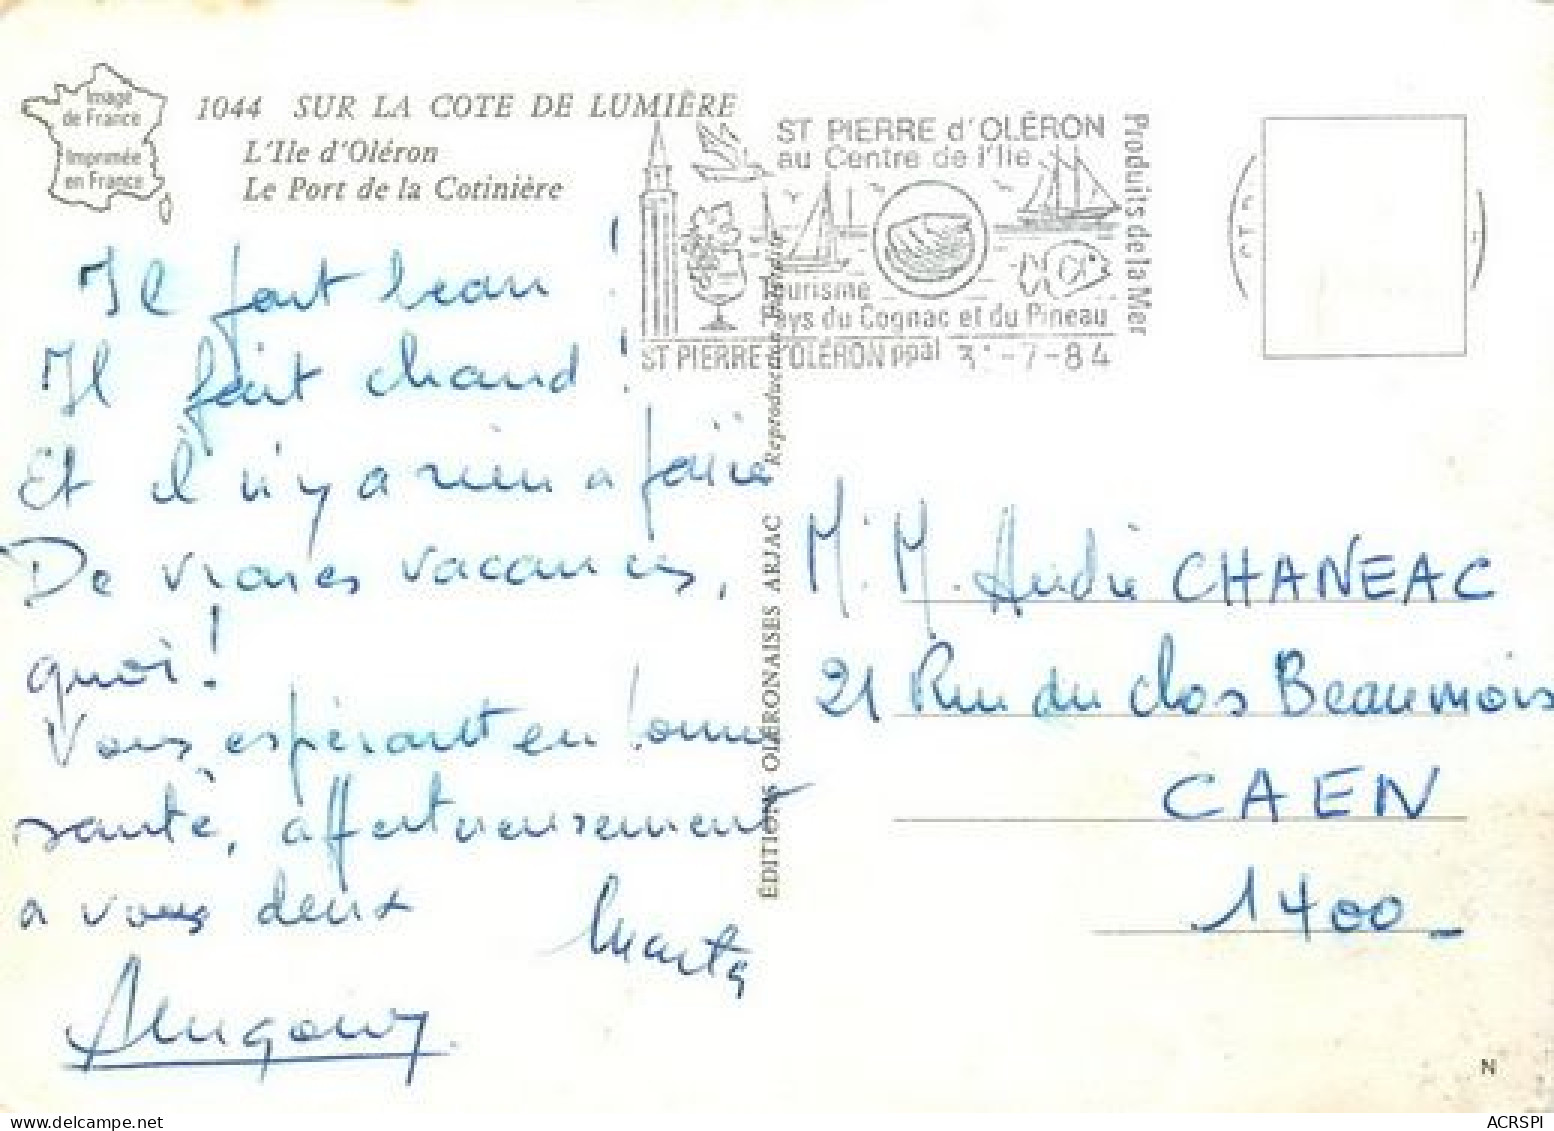 Image
de France
Imprimée
en France
1044 SUR LA COTE DE LUMIÈRE
L'Ile d'Oléron
Le Port de la Cotinière
ST PIERRE d'OLÉRON
au Centre de l'Ile
Produits de la Mer
Tourisme
Pays du Cognac et du Pineau
ST PIERRE d'OLÉRON ppal 3 -7-84
Il fait beau !
Il fait chaud !
Et il n'y a rien a faire
De vraies vacances,
quoi !
Vous espérant en bonne
santé, affectueusement
a vous deux
Marta
ÉDITIONS OLÉRONAISES ARJAC Reproduction interdite
M. M. André CHANEAC
21 Rue du clos Beaumois
CAEN
1400_
N
ACRSPI